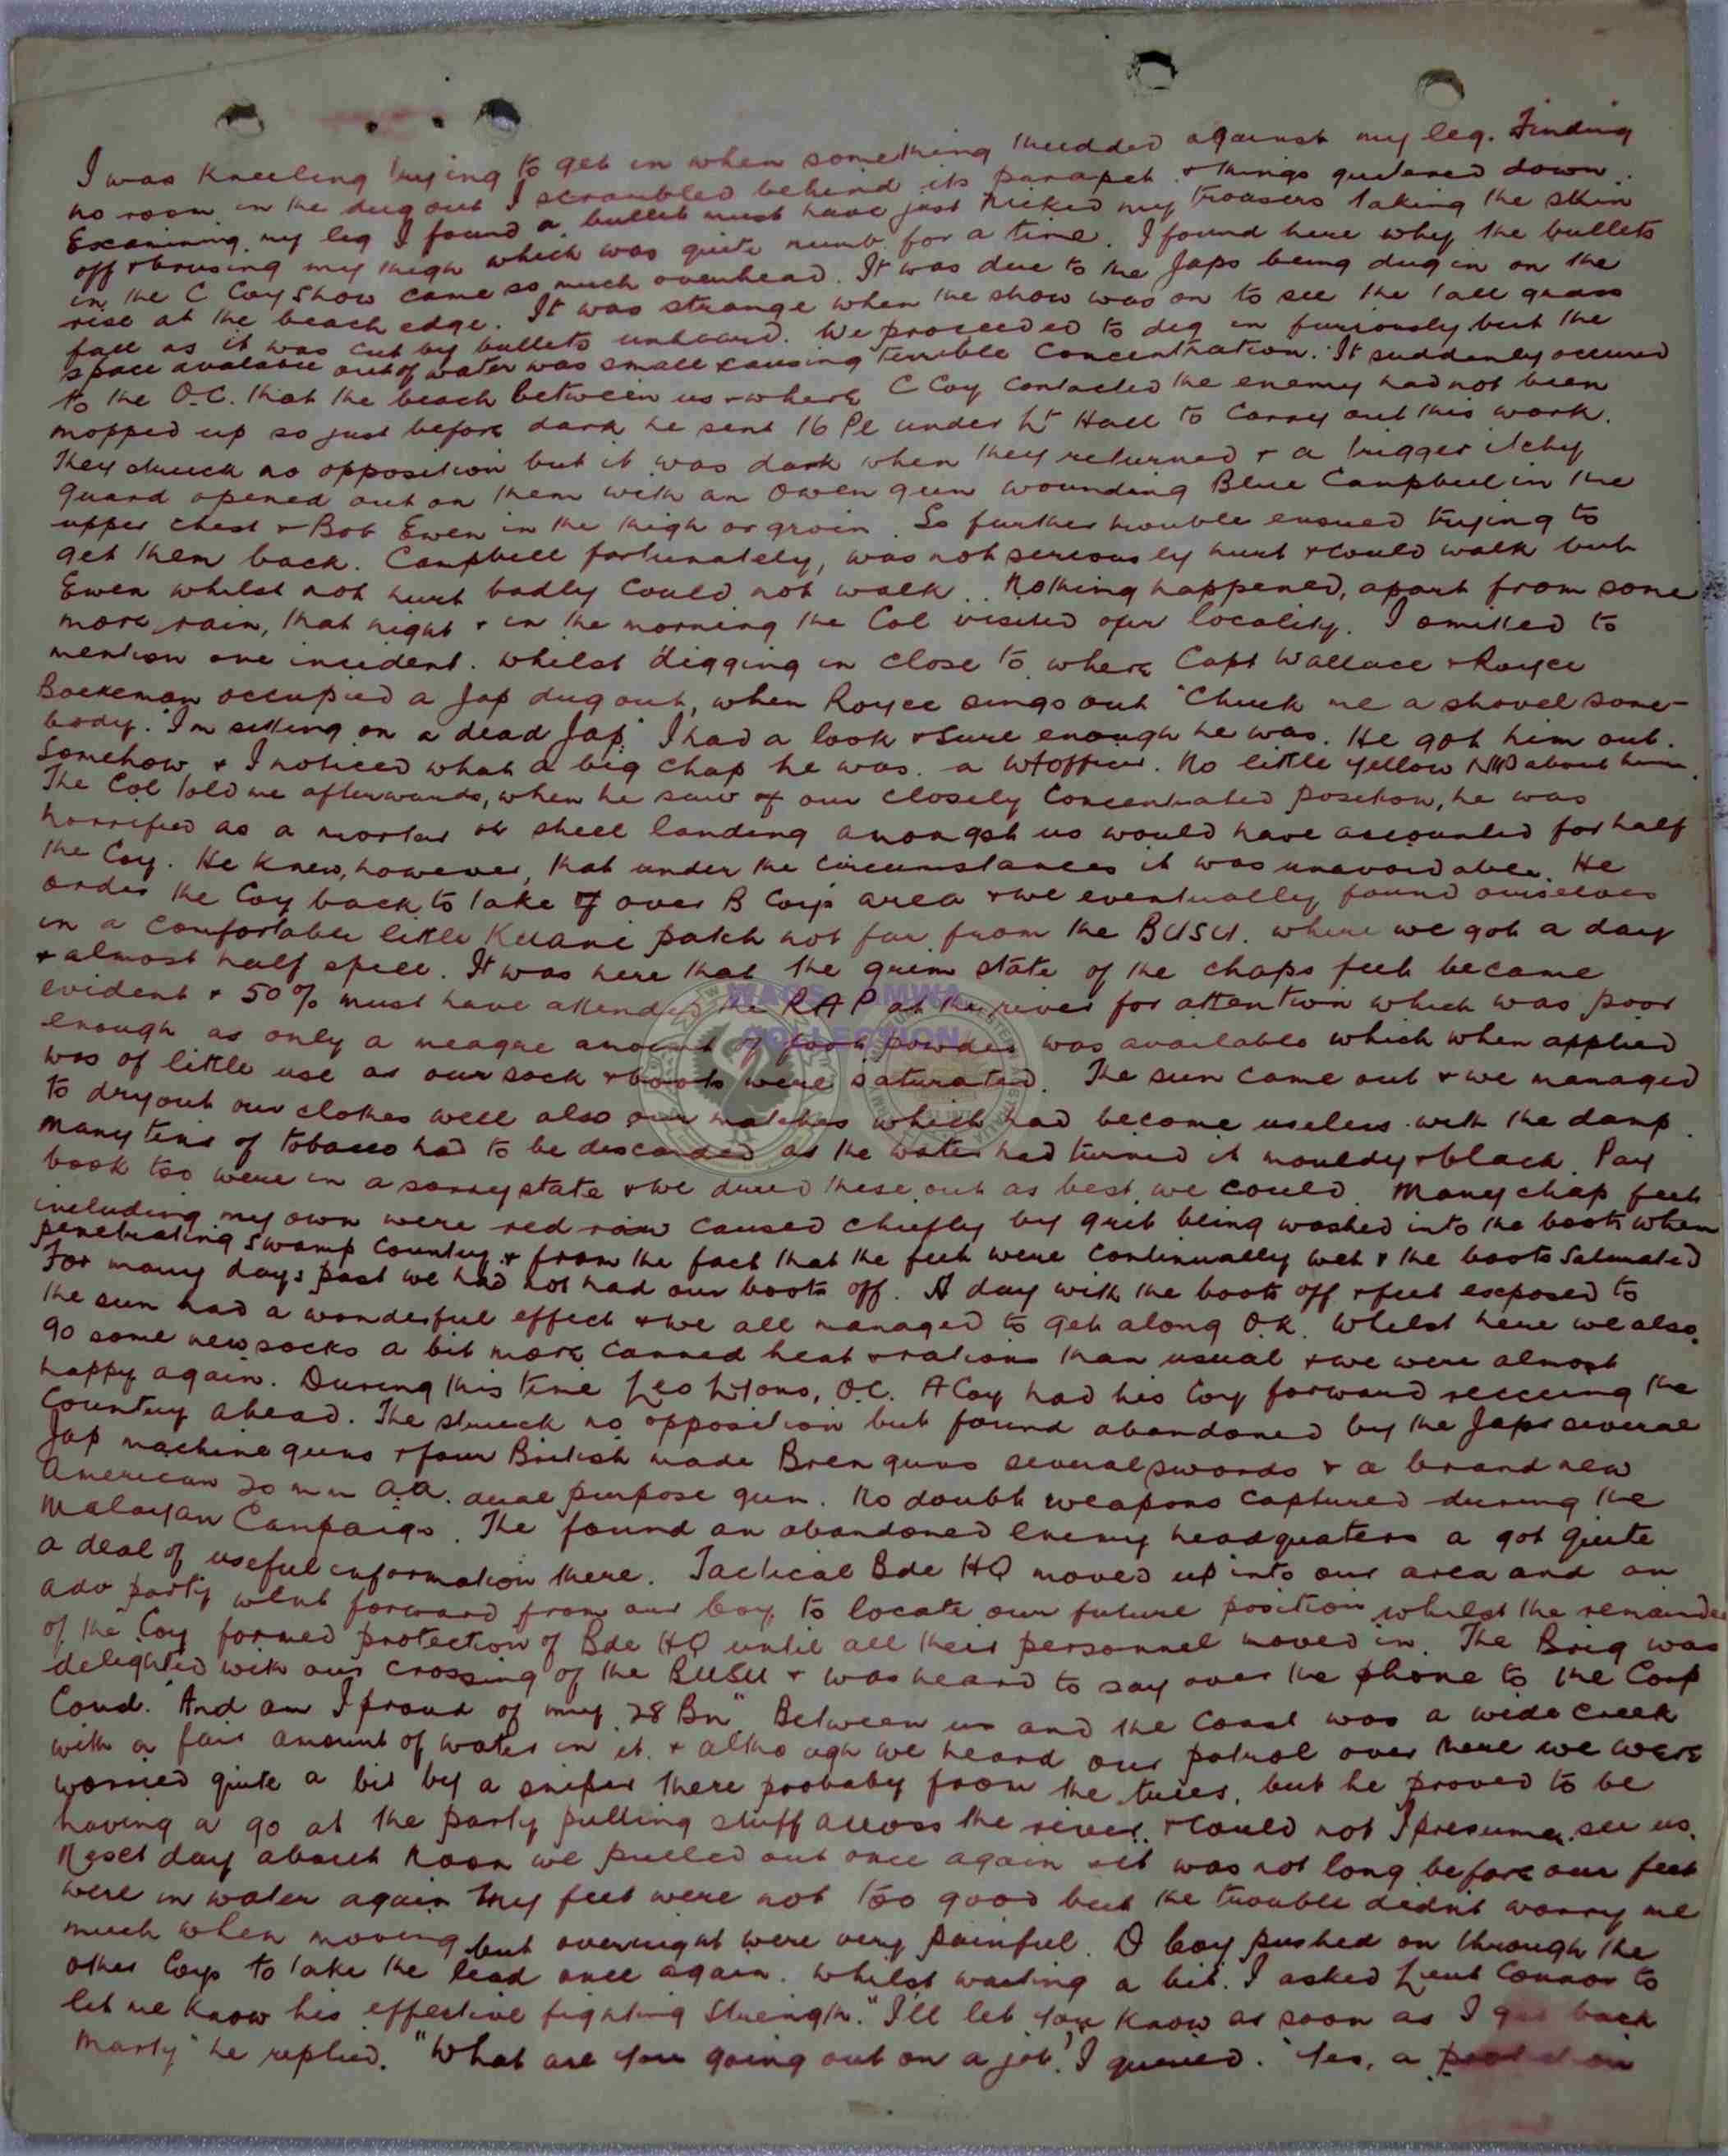 I was kneeling trying to get in when something thudded against my leg. Finding
no room in the dug out I scrambled behind its parapet & things quitened down.
Examining my leg I found a bullet must have just nicked my trousers taking the skin
off & brusing my thigh which was quite numb for a time. I found here why the bullets
in the C Coy show came so much overhead. It was due to the Japs being dug in on the
rise at the beach edge. It was strange when the show was on to see the tall grass
fall as it was cut by bullets unheard. We proceeded to dig in furiously but the
space avalable out of water was small causing terrible concentration. It suddenly occured
to the O.C. that the beach between us & where C Coy contacted the enemy had not been
mopped up so just before dark he sent 16 Pl under Lt Hall to carry out this work.
They struck no opposition but it was dark when they returned & a trigger itchy
guard opened out on them with an Owen gun wounding Blue Campbell in the
upper chest & Bob Ewen in the thigh or groin. So further trouble ensued trying to
get them back. Campbell fortunately, was not seriously hurt & could walk but
Ewen whilst not hurt badly could not walk. Nothing happened, apart from some
more rain, that night & in the morning the Col visited our locality. I omitted to
mention one incident. Whilst digging in close to where Capt Wallace & Royce
Boekeman occupied a Jap dug out, when Royce sings out "Chuck me a shovel some-
body. I'm sitting on a dead Jap" I had a look & sure enough he was. He got him out.
Somehow & I noticed what a big chap he was. a W/officer. No little yellow about him.
The Col told me afterwards, when he saw of our closely concentrated position, he was
horrified as a mortar or shell landing amongst us would have accounted for half
the Coy. He knew, however, that under the circumstances it was unavoidable. He
order the Coy back to take over B Coys area & we eventually found ourselves
in a comfortable little Kunai patch not far from the BUSU. where we got a day
& almost half spell. It was here that the grim state of the chaps feet became
evident & 50% must have attended the RAP at the river for attention which was poor
enough as only a meagre amount of foot powder was available which when applied
was of little use as our sock & boots were saturated. The sun came out & we managed
to dry out our clothes well also our matches which had become useless with the damp.
Many tins of tobacco had to be discarded as the water had turned it mouldy & black. Pay
book too were in a sorry state & we dried these out as best we could. Many chap feet
including my own were red raw caused chiefly by grit being washed into the boots when
penetrating swamp country & from the fact that the feet were continually wet & the boots saturated
For many days past we had not had our boots off. A day with the boots off & feet exposed to
the sun had a wonderful effect & we all managed to get along O.K. Whilst here we also
go some new socks a bit more canned heat & rations than usual & we were almost
happy again. During this time Leo Lyons, O.C. A Coy had his Coy forward recceing the
Country ahead. The struck no opposition but found abandoned by the Japs several
Jap machine guns & four British made Bren guns several swords & a brand new
American 20 mm A.A. dual purpose gun. No doubt weapons captured during the
Malayan Campaign. The found an abandoned enemy headquaters a got quite
a deal of useful information there. Tactical Bde HQ moved up into our area and an
adv party went forward from our Coy to locate our future position whilst the remainder
of the Coy formed protection of Bde HQ until all their personnel moved in. The Brig was
delighted with our crossing of the BUSU & was heard to say over the phone to the Corp
Comd. "And am I proud of my 28 Bn" Between us and the coast was a wide creek
with a fair amount of water in it. & altho ugh we heard our patrol over there we were
worried quite a bit by a sniper there probaby from the trees, but he proved to be
having a go at the party pulling stuff across the river. & could not I presume see us.
Next day about noon we pulled out once again & it was not long before our feet
were in water again My feet were not too good but the trouble didn't worry me
much when moving but overnight were very painful. D Coy pushed on through the
other Coys to take the lead once again. Whilst waiting a bit. I asked Lieut Connor to
let me know his effective fighting strength. "I'll let you know as soon as I get back
Marty" he replied. "What are you going out on a job? I queried. "Yes, a
WAGS - AMWA
COLLECTION